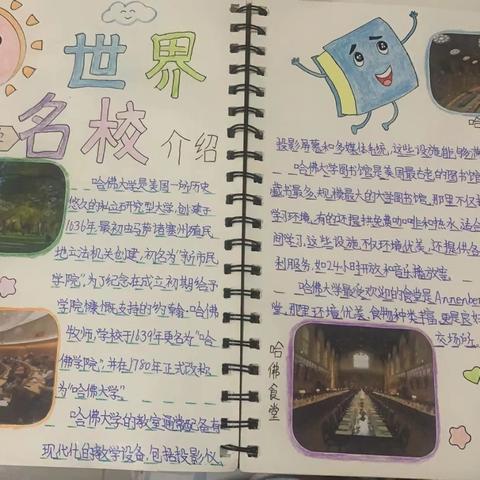 世界
名校介绍
哈佛大学是美国一所历史
悠久的私立研究型大学,创建于
1636年,最初由马萨诸塞州殖民
地立法机关创建,初名为"新市民
学院",为了纪念在成立初期给予
学院慷慨支持的约翰·哈佛
牧师,学校于1639年更名为"哈
佛学院",并在1780年正式改称
为"哈佛大学"
哈佛大学的教室通常配备有
现代化的教学设备,包括投影仪,
投影屏幕和多媒体系统,这些设施能够满
哈佛大学图书馆是美国最古老的图书馆
藏书最多,规模最大的大学图书馆,那里不仅
学习环境,有的还提供免费咖啡和热水,适合
间学习,这些设施不仅环境优美,还提供各
利服务,如24小时开放和音乐播放室
哈佛大学最受欢迎的食堂是Annenber
堂,那里环境优美,食物种类丰富,更是良好
交场所
哈佛食堂